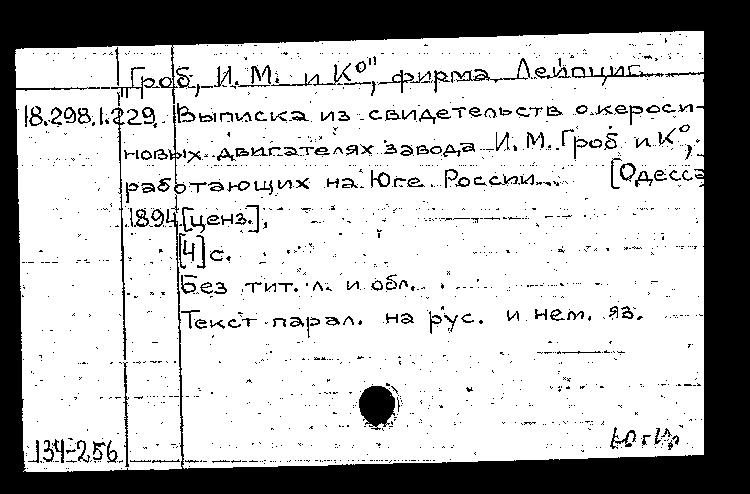 "Гроб, И. М. и К°", фирма. Лейпциг.
18.298.1.229. Выписка из свидетельств о кероси-
новых двигателях завода И. М. Гроб и К°,
работающих на Юге России... [Одесса
1894 [ценз.],
[4] с.
Без тит. л. и обл.
Текст парал. на рус. и нем. яз.
134-256